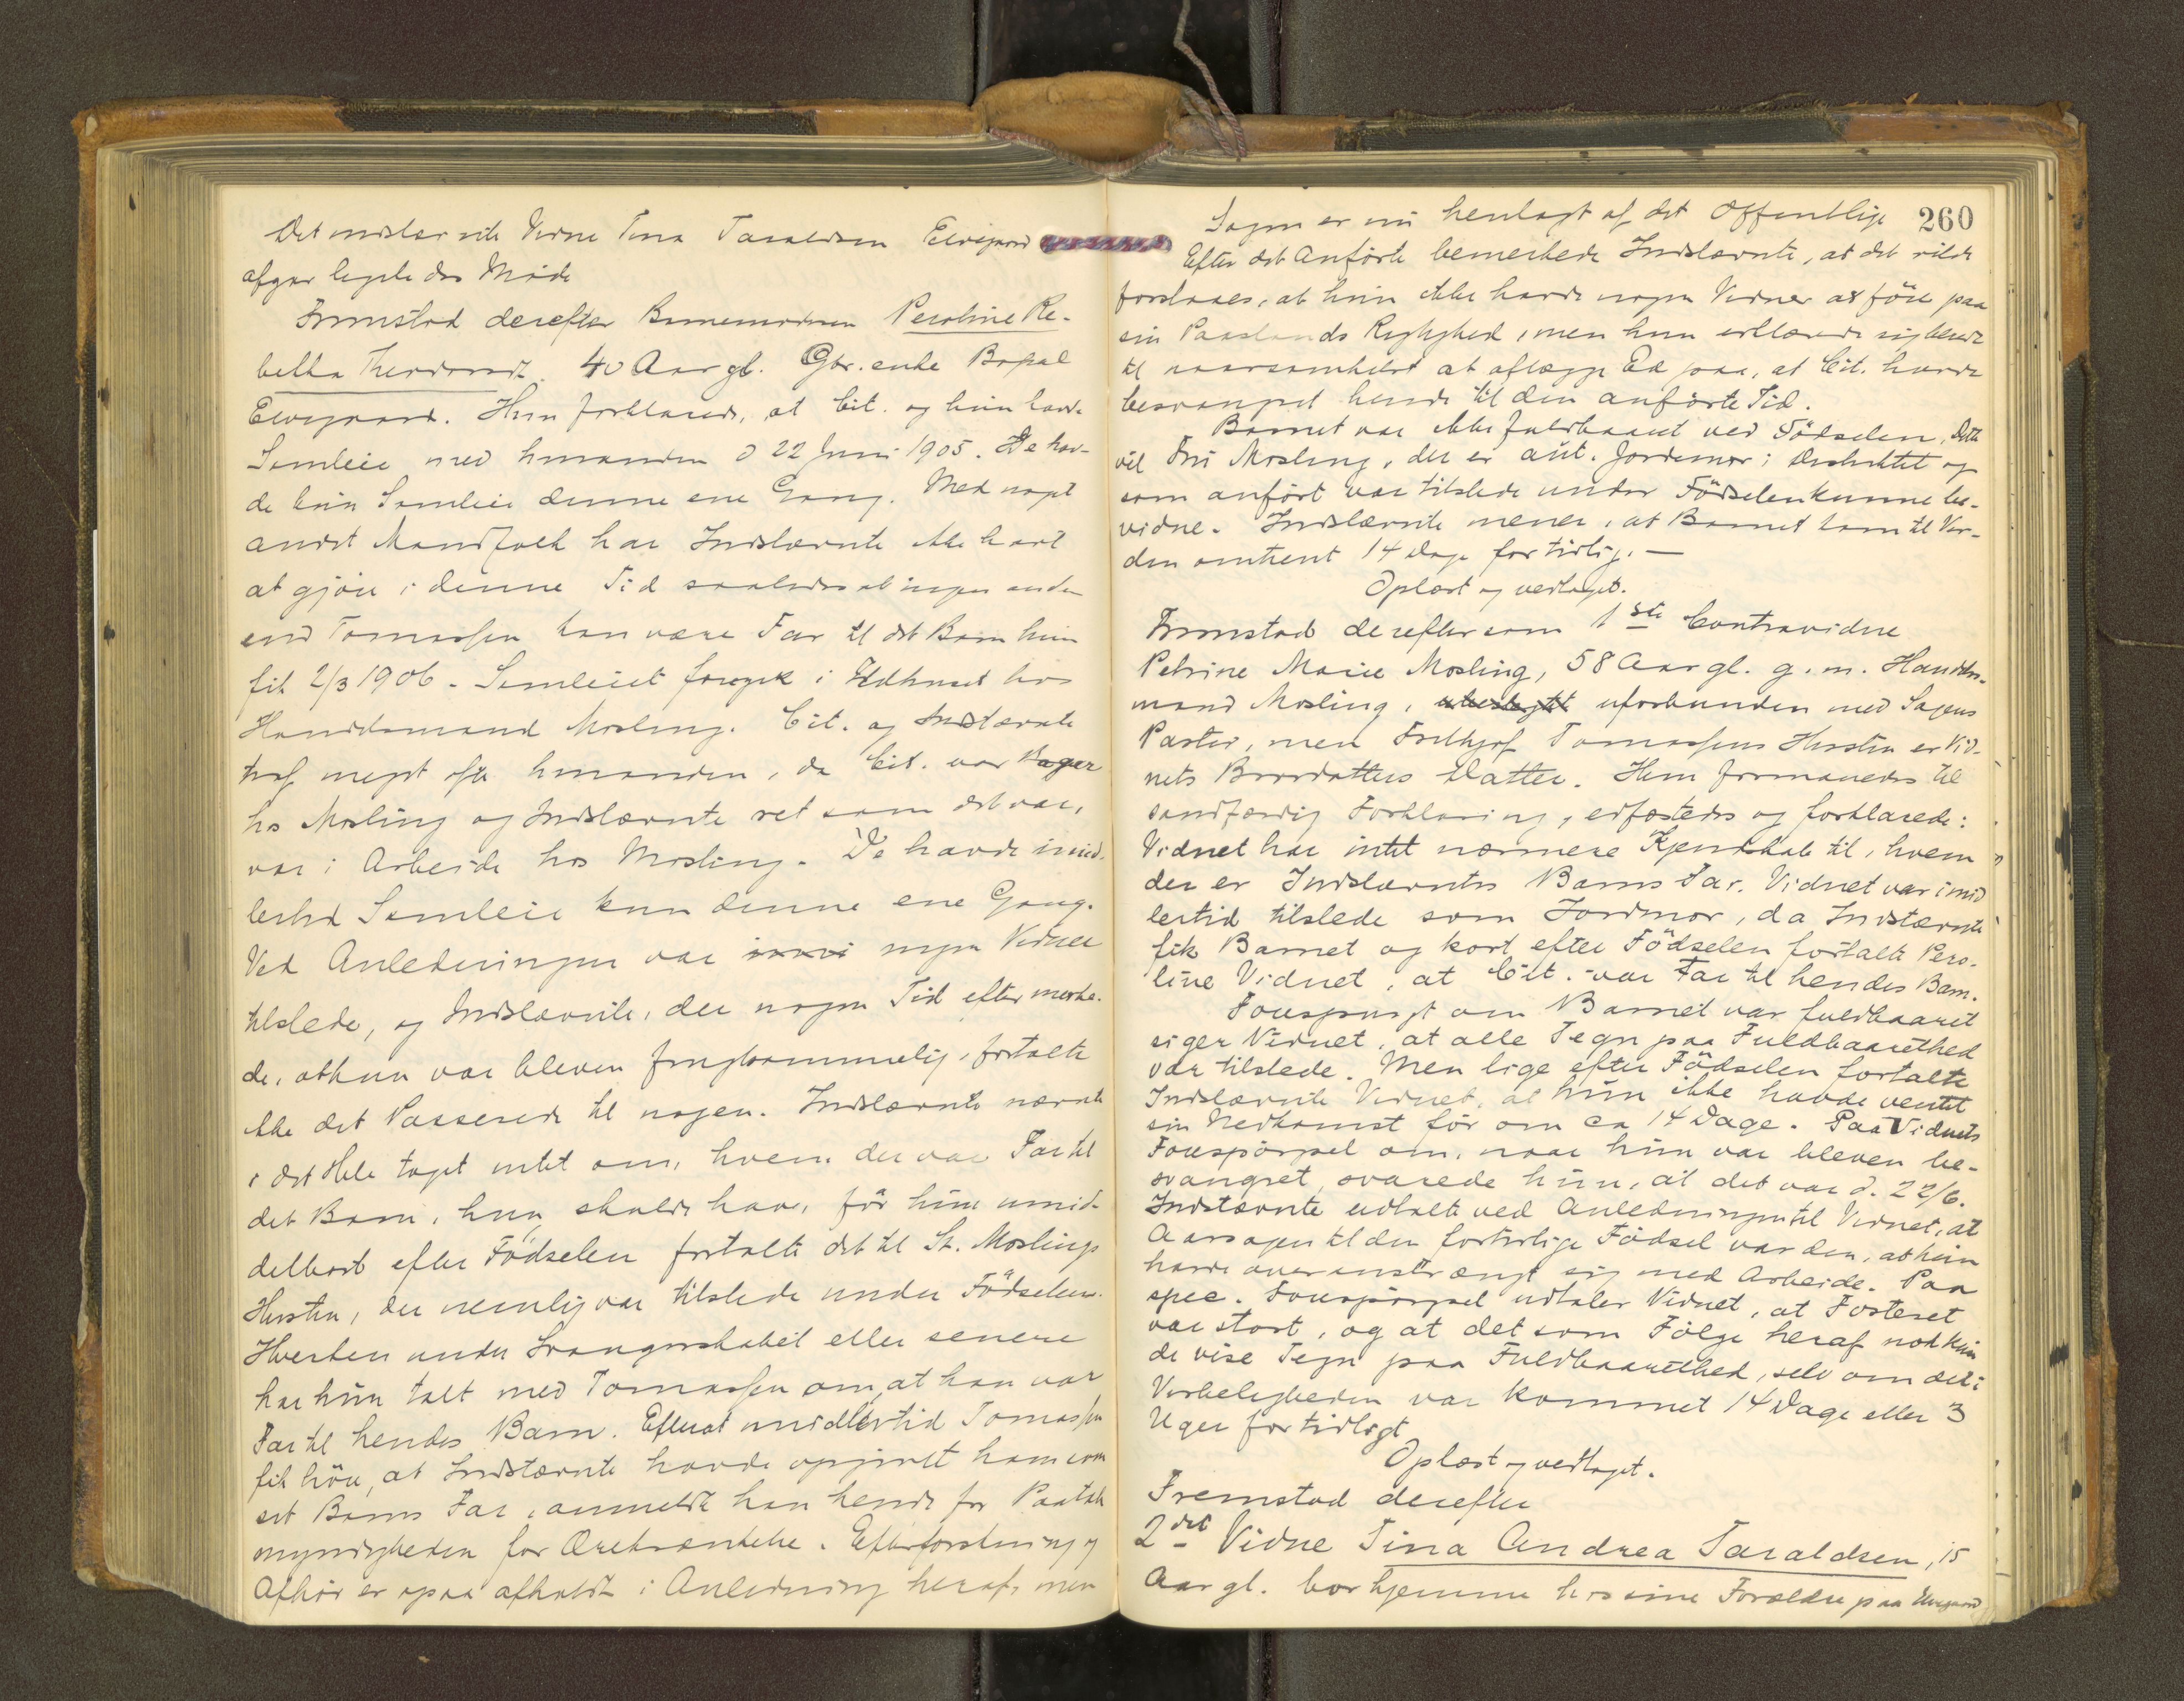 Det indstævnte Vidne Tina Taraldsen Elvegaard
afgav legale das Møde
Fremstod derefter Barnemoderen Peroline Re-
bekka 40 Aar gl. Gbr. enke Bopæl
Elvegaard. Hun forklarede, at Cit. og hun havde
Samleie med hinanden d 22 Juni 1905. De hav-
de kun Samleie denne ene Gang. Med noget
andet Mandfolk har Indstævnte ikke havt
at gjøre i denne Tid saaledes at ingen anden
end Tomassen kan være Far til det Barn hun
fik 2/3 1906. Samleiet foregik i Ildhuset hos
Handelsmand Mosling. Cit. og Indstævnte
traf meget ofte hinanden, da Cit. var Bager
hos Mosling og Indstævnte ret som det var,
var i Arbeide hos Mosling. De havde imid-
lertid Samleie kun denne ene Gang.
Ved Anledningen var nogen Vidner
tilstede, og Indstævnte, der nogen Tid efter merke-
de, at hun var bleven frugtsommelig, fortalte
ikke det Passerede til nogen. Indstævnte nævnte
i det Hele taget intet om, hvem der var Far til
det Barn, hun skulde have, før hun umid-
delbart efter Fødselen fortalte det til St. Moslings
Hustru, der nemlig var tilstede under Fødselen.
Hverken under Svangerskabet eller senere
har hun talt med Tomassen om, at han var
Far til hendes Barn. Efterat imidlertid Tomassen
fik høre, at Indstævnte havde opgivet ham som
sit Barns Far, anmeldte han hende for Paatale
myndigheden for Ærekrænkelse. Efterforskning og
Afhør er ogsaa afholdt i Anledning heraf, men
260
Sagen er nu henlagt af det Offentlige
Efter det Anførte bemerkede Indstævnte, at det vilde
forstaaes, at hun ikke havde nogen Vidner at føre paa
sin Paastands Rigtighed, men hun erklærede sig berede
til naarsomhelst at aflægge Ed paa, at Cit. havde
besvangret hende til den anførte Tid.
Barnet var ikke fuldbaaret ved Fødselen. Dette
vil Fru Mosling, der er aut. Jordemor i Distriktet og
som anført var tilstede under Fødselen kunne be-
vidne. Indstævnte mener, at Barnet kom til Ver-
den omtrent 14 Dage for tidlig. —
Oplæst og vedtaget.
Fremstod derefter som 1ste Contravidne
Petrine Marie Mosling, 58 Aar gl. g. m. Handels-
mand Mosling, ubeslegtet uforbunden med Sagens
Parter, men Fridtjof Tomassens Hustru er Vid-
nets Brordatters Datter. Hun formanedes til
sandfærdig Forklaring, edfæstedes og forklarede:
Vidnet har intet nærmere Kjendskab til, hvem
der er Indstævntes Barns Far. Vidnet var imid
lertid tilstede som Jordmor, da Indstævnte
fik Barnet og kort efter Fødselen fortalte Pero-
line Vidnet, at Cit. var Far til hendes Barn.
Forespurgt om Barnet var fuldbaaret
siger Vidnet, at alle Tegn paa Fuldbaarethed
var tilstede. Men lige efter Fødselen fortalte
Indstævnte Vidnet, at hun ikke havde ventet
sin Nedkomst før om ca 14 Dage. Paa Vidnets
Forespørgsel om, naar hun var bleven be-
svangret, svarede hun, at det var d. 22/6.
Indstævnte udtalte ved Anledningen til Vidnet, at
Aarsagen til den fortidlige Fødsel var den, at hun
havde overanstrængt sig med Arbeide. Paa
spec. Forespørgsel udtaler Vidnet, at Fosteret
var stort, og at det som Følge heraf nok kun
de vise Tegn paa Fuldbaarethed, selv om det i
Virkeligheden var kommet 14 Dage eller 3
Uger for tidligt
Oplæst og vedtaget.
Fremstod derefter
2det Vidne Tina Andrea Taraldsen, 15
Aar gl. bor hjemme hos sine Forældre paa Elvegaard